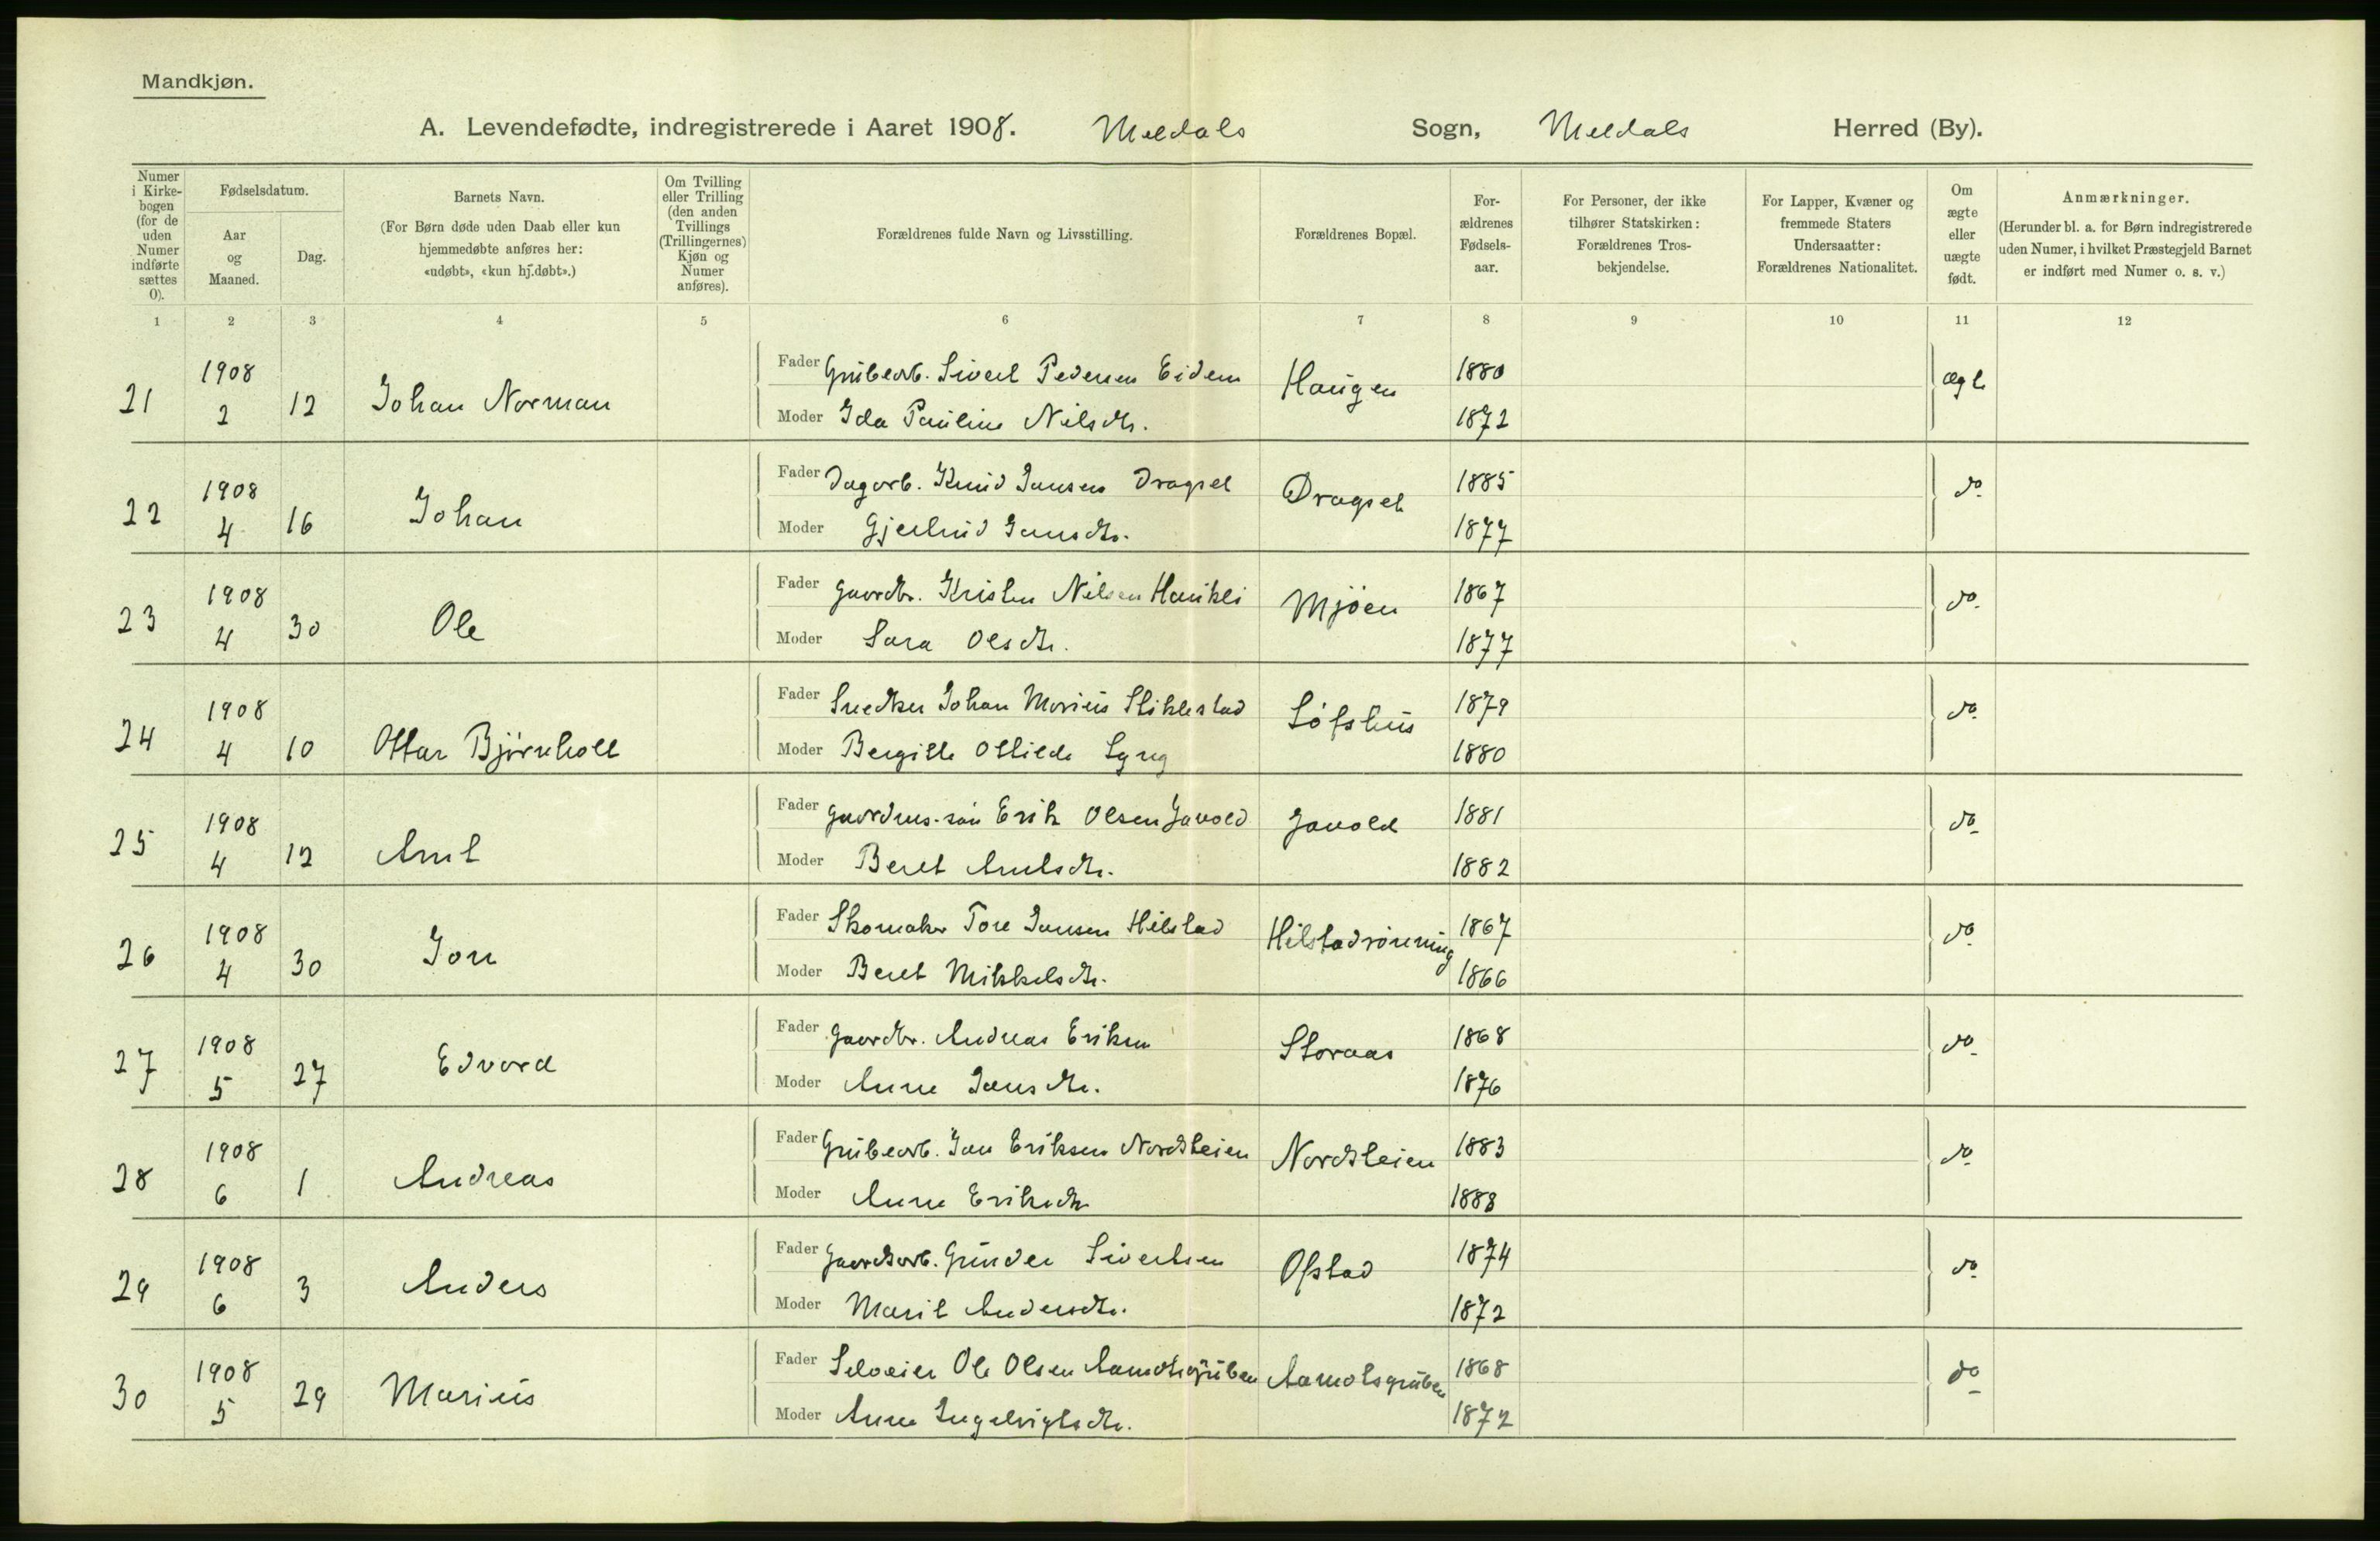 Mandkjøn.
A. Levendefødte, indregistrerede i Aaret 1908. Meldals Sogn, Meldals Herred (By).
Numer i Kirkebogen (for de uden Numer indførte sættes 0).
Fødselsdatum.
Aar og Maaned.
Dag.
Barnets Navn.
(For Børn døde uden Daab eller kun hjemmedøbte anføres her: «udøbt», «kun hj.døbt».)
Om Tvilling eller Trilling (den anden Tvillings (Trillingernes) Kjøn og Numer anføres).
Forældrenes fulde Navn og Livsstilling.
Forældrenes Bopæl.
Forældrenes Fødselsaar.
For Personer, der ikke tilhører Statskirken: Forældrenes Trosbekjendelse.
For Lapper, Kvæner og fremmede Staters Undersaatter: Forældrenes Nationalitet.
Om ægte eller uægte født.
Anmærkninger.
(Herunder bl. a. for Børn indregistrerede uden Numer, i hvilket Præstegjeld Barnet er indført med Numer o. s. v.)
1 2 3 4 5 6 7 8 9 10 11 12
21 1908 2 12 Johan Norman
Fader Grubearb. Sivert Pedersen Eidem Haugen 1880 ægte
Moder Ida Pauline Nilsdtr. 1872
22 1908 4 16 Johan
Fader Dagarb. Knud Jansen Dragset Dragset 1885 do
Moder Gjertrud Jansdtr. 1877
23 1908 4 30 Ole
Fader Gaardbr. Kristen Nilsen Haukli Mjøen 1867 do
Moder Sara Olsdtr. 1877
24 1908 4 10 Ottar Bjørnholt
Fader Snedker Johan Marius Stiklestad Løfshus 1879 do
Moder Bergitte Ottilde Lyng 1880
25 1908 4 12 Arnt
Fader Gaardms. søn Erik Olsen Javold Javold 1881 do
Moder Beret Arntsdtr. 1882
26 1908 4 30 Jon
Fader Skomaker Tore Jansen Hilstad Hilstadrønning 1867 do
Moder Beret Mikkelsdtr. 1866
27 1908 5 27 Edvard
Fader Gaardbr. Andreas Eriksen Storaas 1868 do
Moder Anne Jansdtr. 1876
28 1908 6 1 Andreas
Fader Grubearb. Jon Eriksen Nordsteien Nordsteien 1883 do
Moder Anne Eriksdtr 1883
29 1908 6 3 Anders
Fader Gaardsarb. Gunder Sivertsen Ofstad 1874 do
Moder Marit Andersdtr. 1872
30 1908 5 29 Marius
Fader Selveier Ole Olsen Aamotsgruben Aamotsgruben 1868 do
Moder Anne Ingebrigtsdtr. 1872